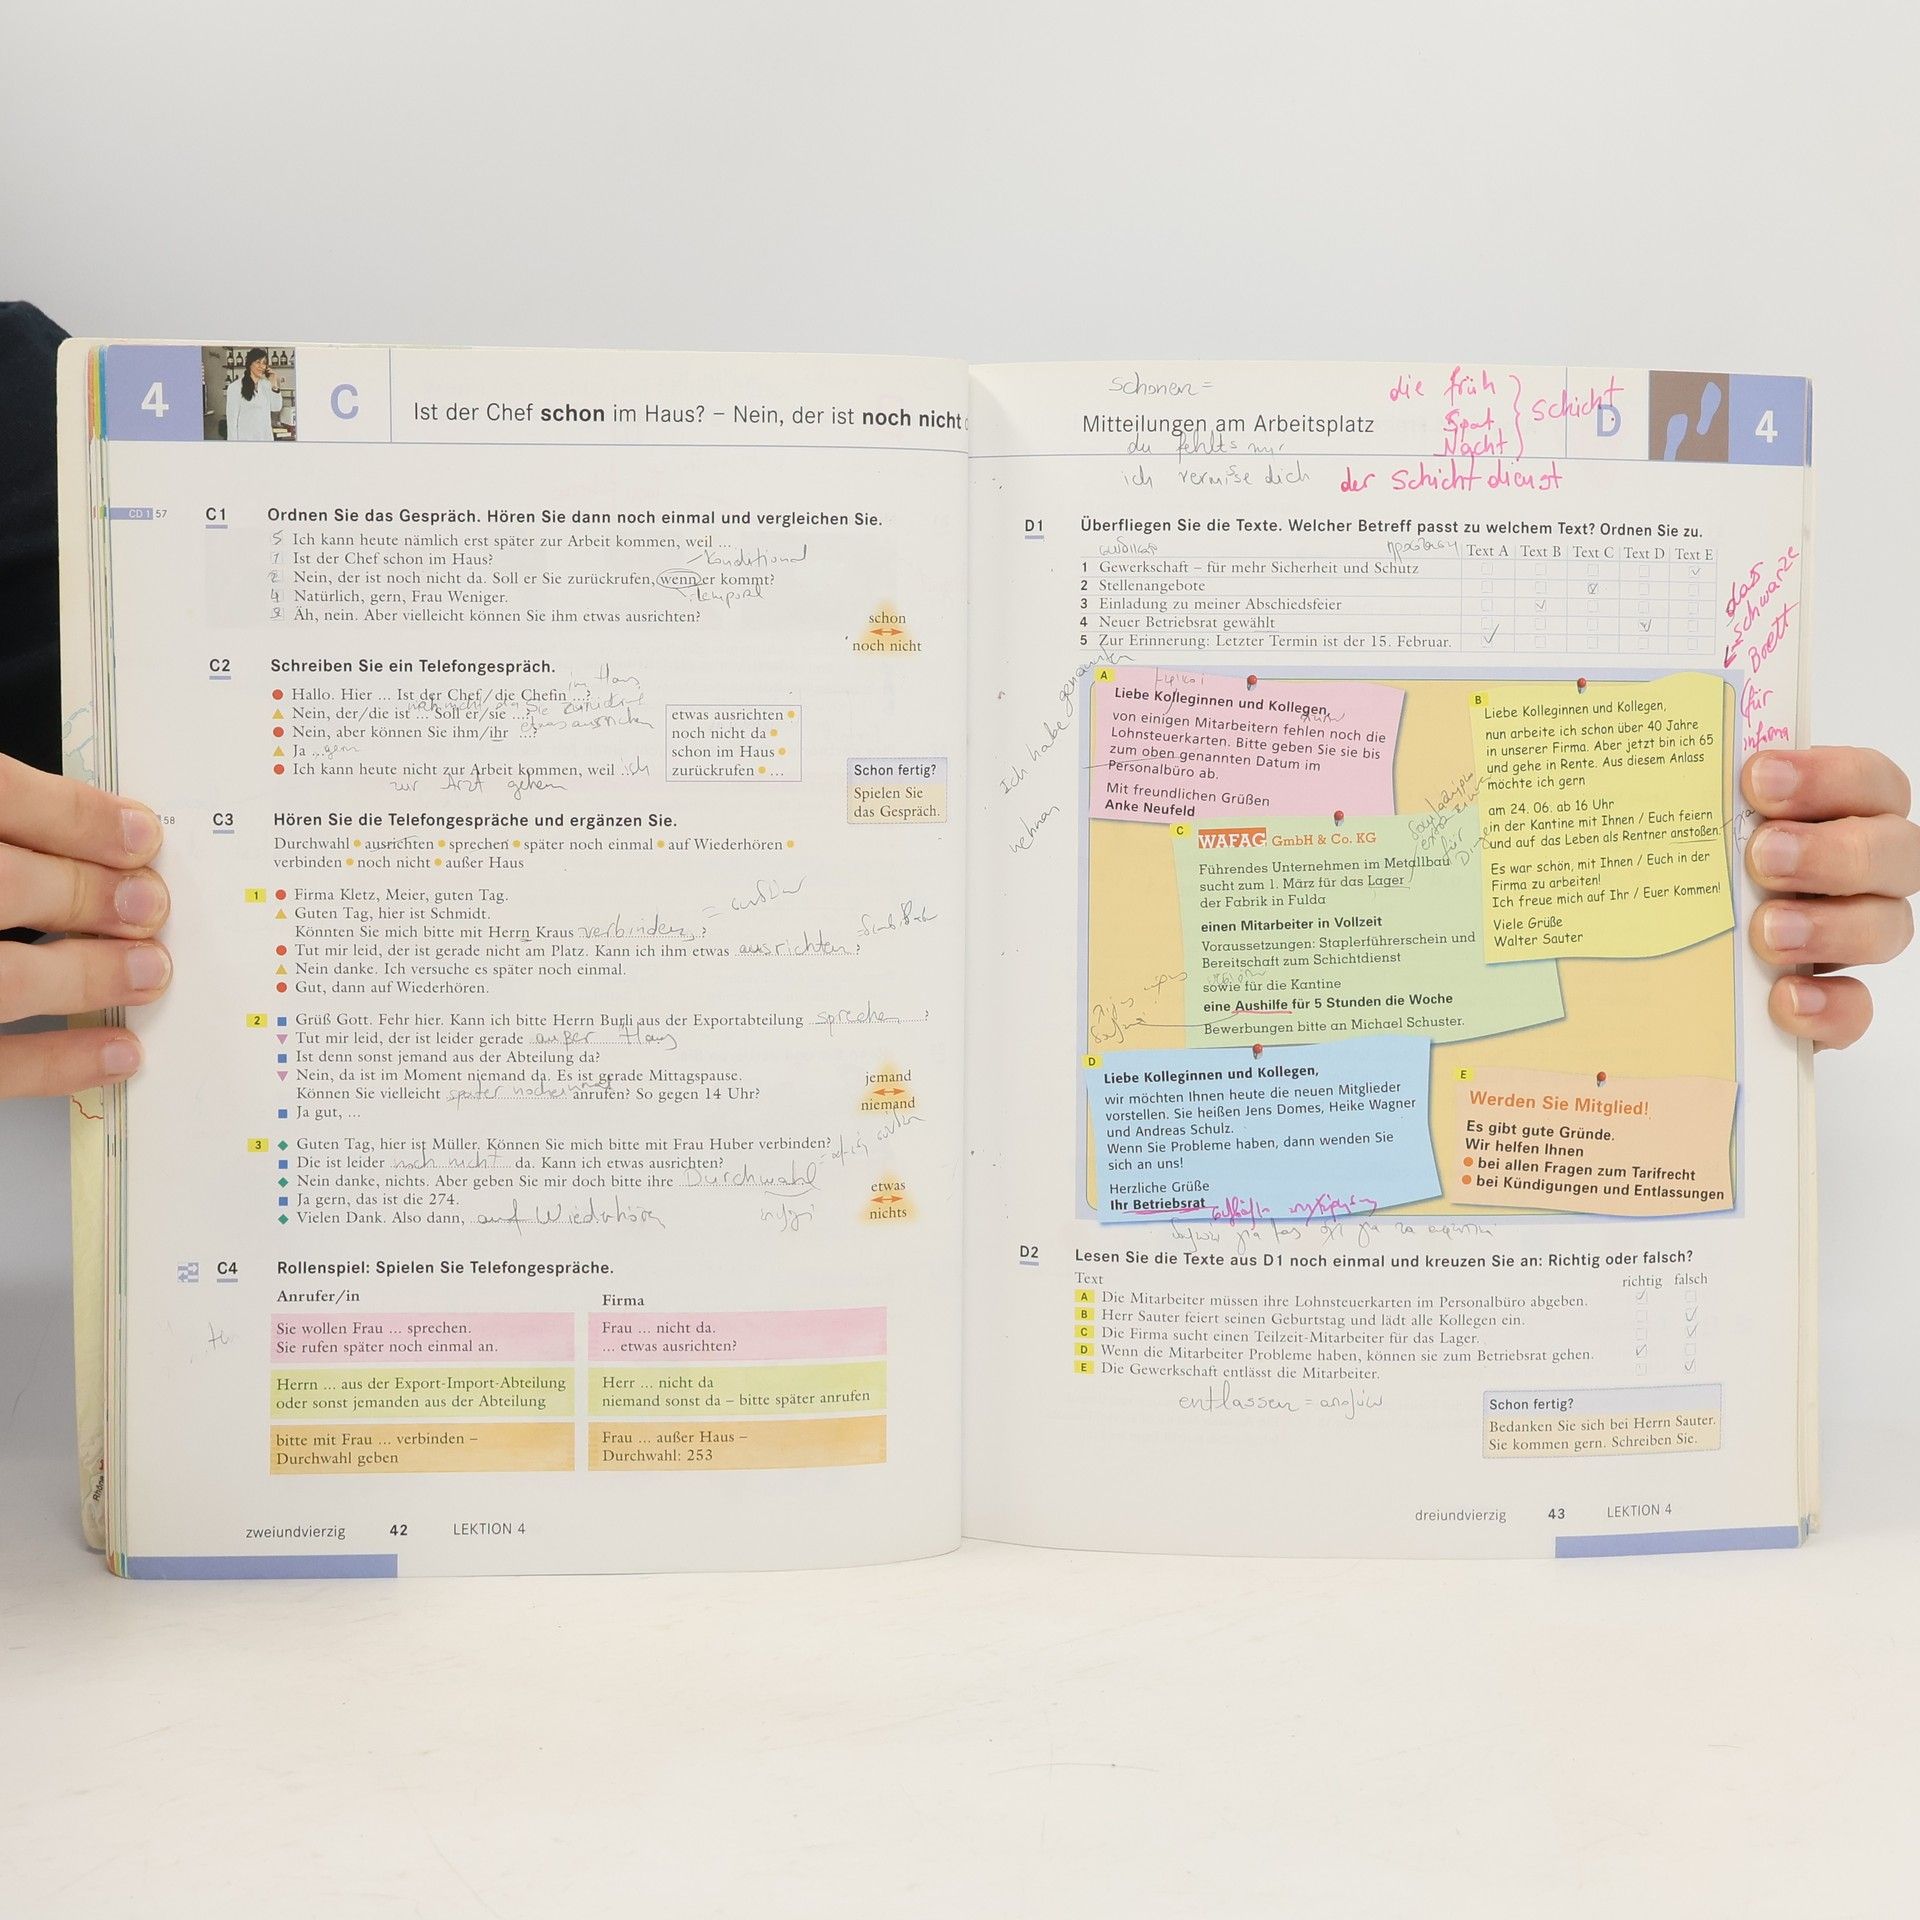 4
C
Ist der Chef schon im Haus? – Nein, der ist noch nicht
CD 1 57
C1
Ordnen Sie das Gespräch. Hören Sie dann noch einmal und vergleichen Sie.
5 Ich kann heute nämlich erst später zur Arbeit kommen, weil ...
Konditional
1 Ist der Chef schon im Haus?
2 Nein, der ist noch nicht da. Soll er Sie zurückrufen, wenn er kommt?
temporal
4 Natürlich, gern, Frau Weniger.
3 Äh, nein. Aber vielleicht können Sie ihm etwas ausrichten?
schon
noch nicht
C2
Schreiben Sie ein Telefongespräch.
im Haus
Hallo. Hier ... Ist der Chef/die Chefin ...?
Nein, der/die ist ... Soll er/sie ...?
etwas ausrichten
Nein, aber können Sie ihm/ihr ...?
Ja ... gern
Ich kann heute nicht zur Arbeit kommen, weil ... ich
zur Arzt gehen
etwas ausrichten
noch nicht da
schon im Haus
zurückrufen ...
Schon fertig?
Spielen Sie
das Gespräch.
58
C3
Hören Sie die Telefongespräche und ergänzen Sie.
Durchwahl • ausrichten • sprechen • später noch einmal • auf Wiederhören •
verbinden • noch nicht • außer Haus
1
Firma Kletz, Meier, guten Tag.
Guten Tag, hier ist Schmidt.
Könnten Sie mich bitte mit Herrn Kraus verbinden?
Tut mir leid, der ist gerade nicht am Platz. Kann ich ihm etwas ausrichten?
Nein danke. Ich versuche es später noch einmal.
Gut, dann auf Wiederhören.
2
Grüß Gott. Fehr hier. Kann ich bitte Herrn Burli aus der Exportabteilung sprechen?
Tut mir leid, der ist leider gerade außer Haus
Ist denn sonst jemand aus der Abteilung da?
Nein, da ist im Moment niemand da. Es ist gerade Mittagspause.
Können Sie vielleicht später nocheinmal anrufen? So gegen 14 Uhr?
Ja gut, ...
jemand
niemand
3
Guten Tag, hier ist Müller. Können Sie mich bitte mit Frau Huber verbinden?
Die ist leider noch nicht da. Kann ich etwas ausrichten?
Nein danke, nichts. Aber geben Sie mir doch bitte ihre Durchwahl
Ja gern, das ist die 274.
Vielen Dank. Also dann, auf Wiederhören
etwas
nichts
C4
Rollenspiel: Spielen Sie Telefongespräche.
Anrufer/in
Firma
Sie wollen Frau ... sprechen.
Sie rufen später noch einmal an.
Frau ... nicht da.
... etwas ausrichten?
Herrn ... aus der Export-Import-Abteilung
oder sonst jemanden aus der Abteilung
Herr ... nicht da
niemand sonst da – bitte später anrufen
bitte mit Frau ... verbinden –
Durchwahl geben
Frau ... außer Haus –
Durchwahl: 253
zweiundvierzig 42 LEKTION 4
schonen =
Mitteilungen am Arbeitsplatz
du fehlts mir
ich vermisse dich
die früh
Spät
Nacht
Schicht
der Schichtdienst
D
4
D1
Überfliegen Sie die Texte. Welcher Betreff passt zu welchem Text? Ordnen Sie zu.
Text A Text B Text C Text D Text E
1 Gewerkschaft – für mehr Sicherheit und Schutz
2 Stellenangebote
3 Einladung zu meiner Abschiedsfeier
4 Neuer Betriebsrat gewählt
5 Zur Erinnerung: Letzter Termin ist der 15. Februar.
das
Schwarze
Brett
(für
Ich habe genommen
nehmen
A
Liebe Kolleginnen und Kollegen,
von einigen Mitarbeitern fehlen noch die
Lohnsteuerkarten. Bitte geben Sie sie bis
zum oben genannten Datum im
Personalbüro ab.
Mit freundlichen Grüßen
Anke Neufeld
B
Liebe Kolleginnen und Kollegen,
nun arbeite ich schon über 40 Jahre
in unserer Firma. Aber jetzt bin ich 65
und gehe in Rente. Aus diesem Anlass
möchte ich gern
am 24. 06. ab 16 Uhr
in der Kantine mit Ihnen / Euch feiern
und auf das Leben als Rentner anstoßen.
Es war schön, mit Ihnen / Euch in der
Firma zu arbeiten!
Ich freue mich auf Ihr / Euer Kommen!
Viele Grüße
Walter Sauter
C
WAFAG GmbH & Co. KG
Führendes Unternehmen im Metallbau
sucht zum 1. März für das Lager
der Fabrik in Fulda
einen Mitarbeiter in Vollzeit
Voraussetzungen: Staplerführerschein und
Bereitschaft zum Schichtdienst
sowie für die Kantine
eine Aushilfe für 5 Stunden die Woche
Bewerbungen bitte an Michael Schuster.
D
Liebe Kolleginnen und Kollegen,
wir möchten Ihnen heute die neuen Mitglieder
vorstellen. Sie heißen Jens Domes, Heike Wagner
und Andreas Schulz.
Wenn Sie Probleme haben, dann wenden Sie
sich an uns!
Herzliche Grüße
Ihr Betriebsrat
E
Werden Sie Mitglied!
Es gibt gute Gründe.
Wir helfen Ihnen
bei allen Fragen zum Tarifrecht
bei Kündigungen und Entlassungen
D2
Lesen Sie die Texte aus D1 noch einmal und kreuzen Sie an: Richtig oder falsch?
Text richtig falsch
A Die Mitarbeiter müssen ihre Lohnsteuerkarten im Personalbüro abgeben.
B Herr Sauter feiert seinen Geburtstag und lädt alle Kollegen ein.
C Die Firma sucht einen Teilzeit-Mitarbeiter für das Lager.
D Wenn die Mitarbeiter Probleme haben, können sie zum Betriebsrat gehen.
E Die Gewerkschaft entlässt die Mitarbeiter.
entlassen =
Schon fertig?
Bedanken Sie sich bei Herrn Sauter.
Sie kommen gern. Schreiben Sie.
dreiundvierzig 43 LEKTION 4